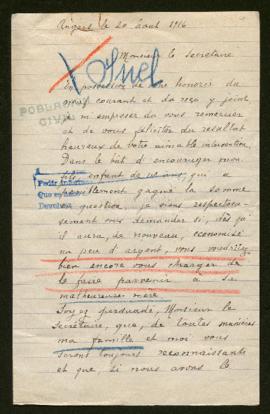 Angers le 20 août 1916
Monsieur le Secrétaire
Snel
En possession de votre honorée du
courant et du reçu y joint
je m'empresse de vous remercier
et de vous féliciter du résultat
heureux de votre aimable intervention
POBLA
CIVI
Dans le but d'encourager mon
fils, enfant de 10 ans, qui a
gagné la somme
en question, je viens respectueu-
sement vous demander si, dès qu'il
aura, de nouveau, économisé
un peu d'argent, vous voudriez
bien encore vous charger de
le faire parvenir à sa
malheureuse mère
Soyez persuadé, Monsieur le
Secrétaire, que, de toutes manières
ma famille et moi vous
serons toujours reconnaissants
et que, si nous avons le